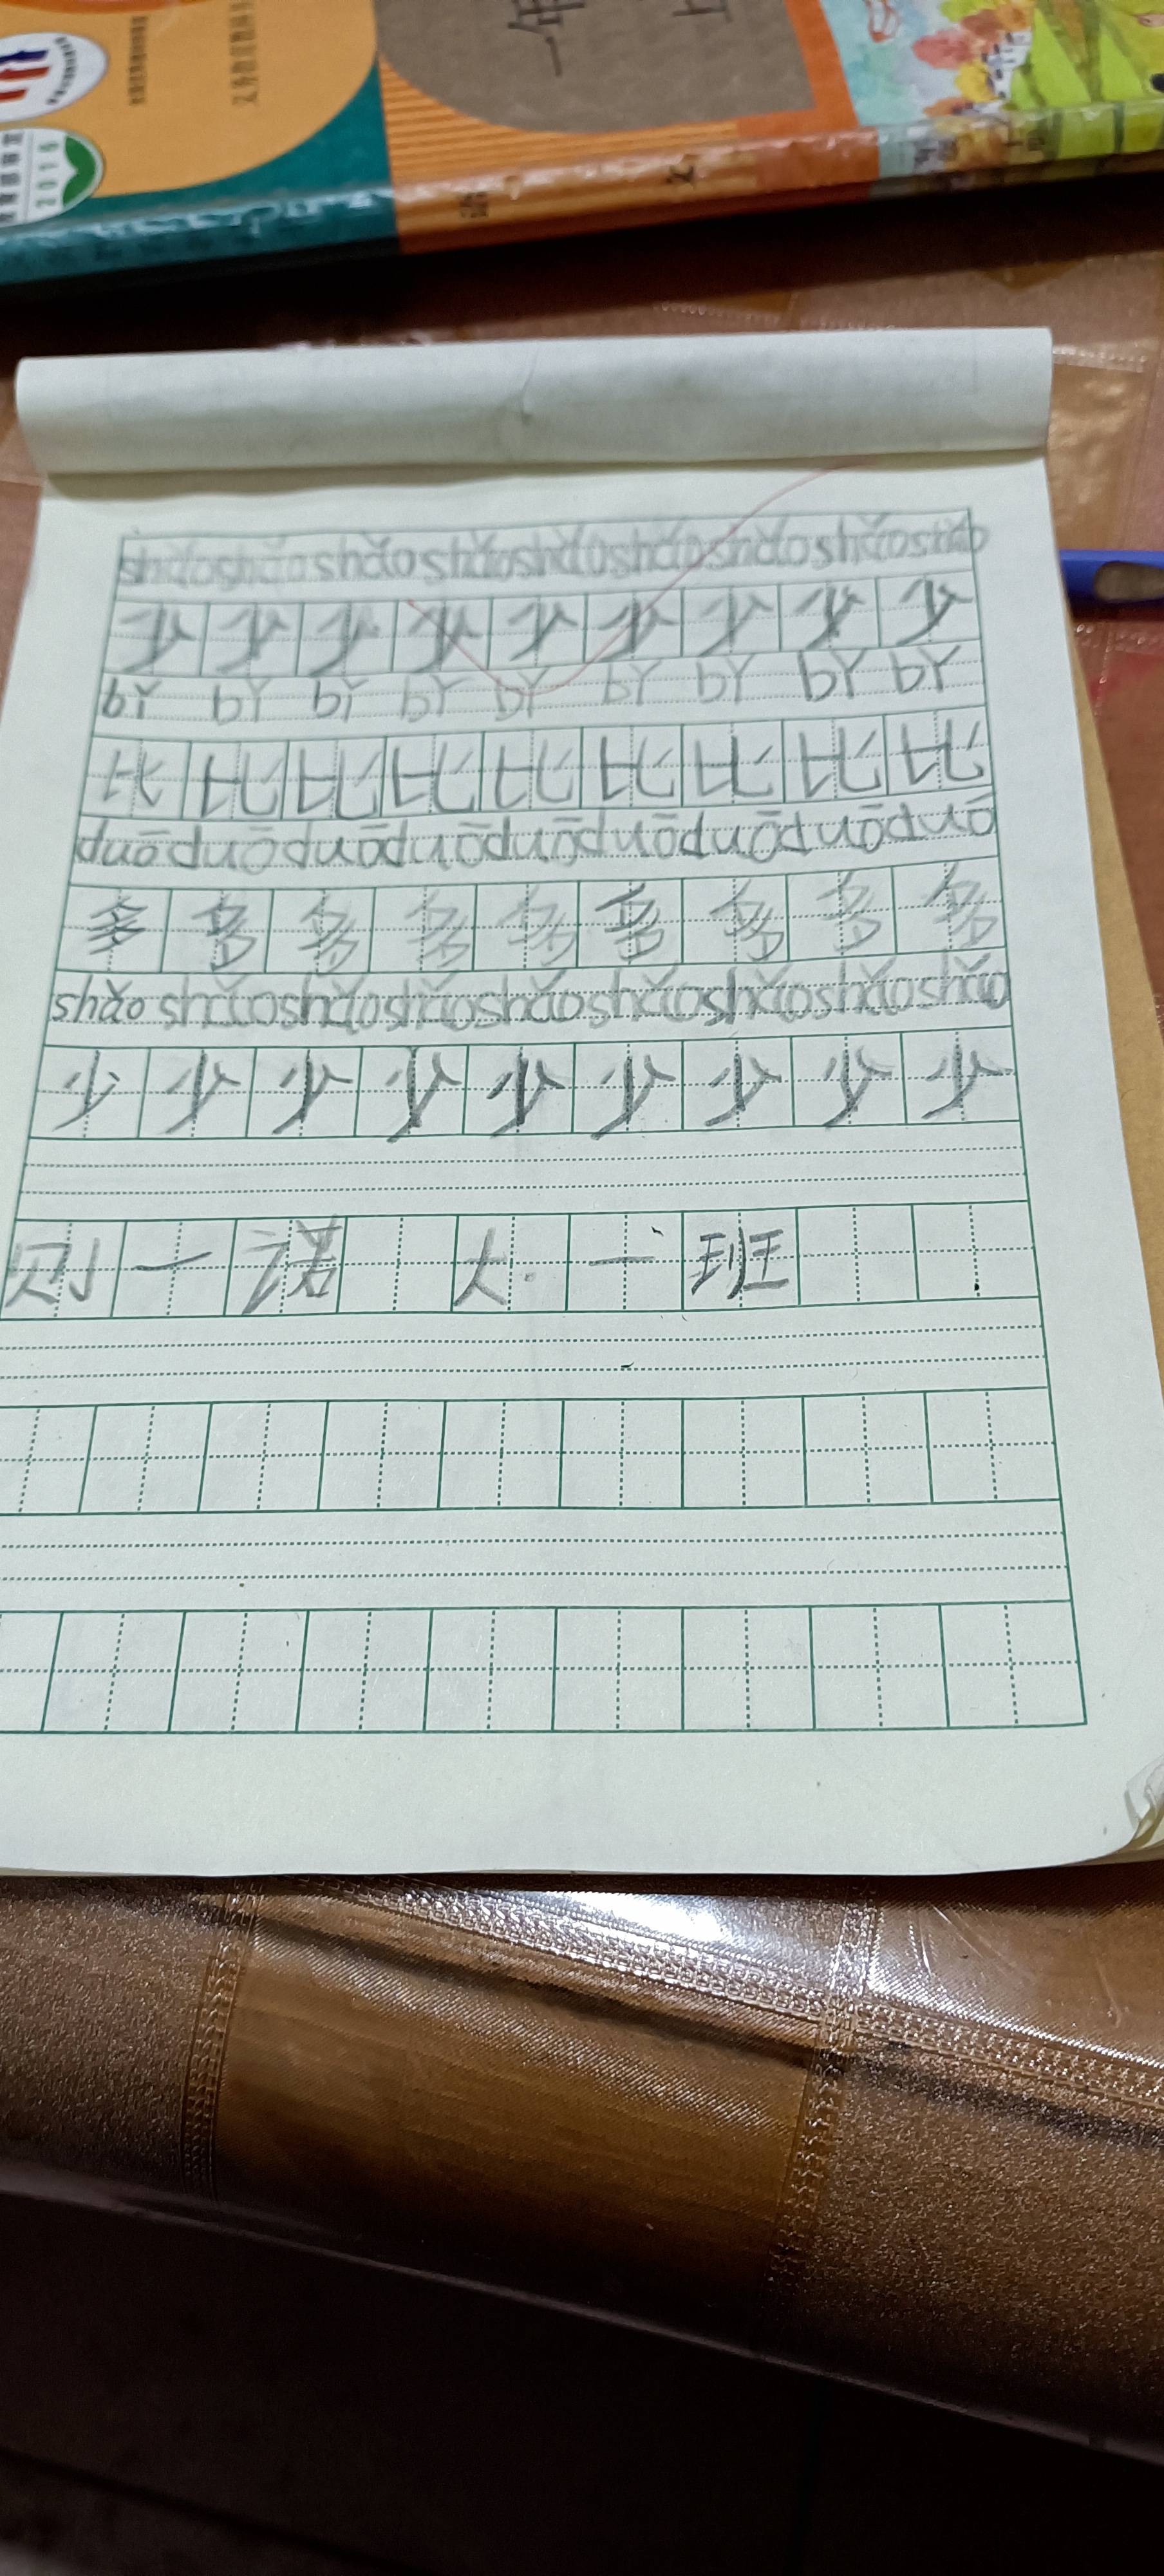 一年
上
语 文
2016
shǎo shǎo shǎo shǎo shǎo shǎo shǎo shǎo shǎo
少 少 少 少 少 少 少 少 少
bǐ bǐ bǐ bǐ bǐ bǐ bǐ bǐ bǐ
比 比 比 比 比 比 比 比 比
duō duō duō duō duō duō duō duō duō
多 多 多 多 多 多 多 多 多
shǎo shǎo shǎo shǎo shǎo shǎo shǎo shǎo shǎo
少 少 少 少 少 少 少 少 少
则 一 诺 大 一 班